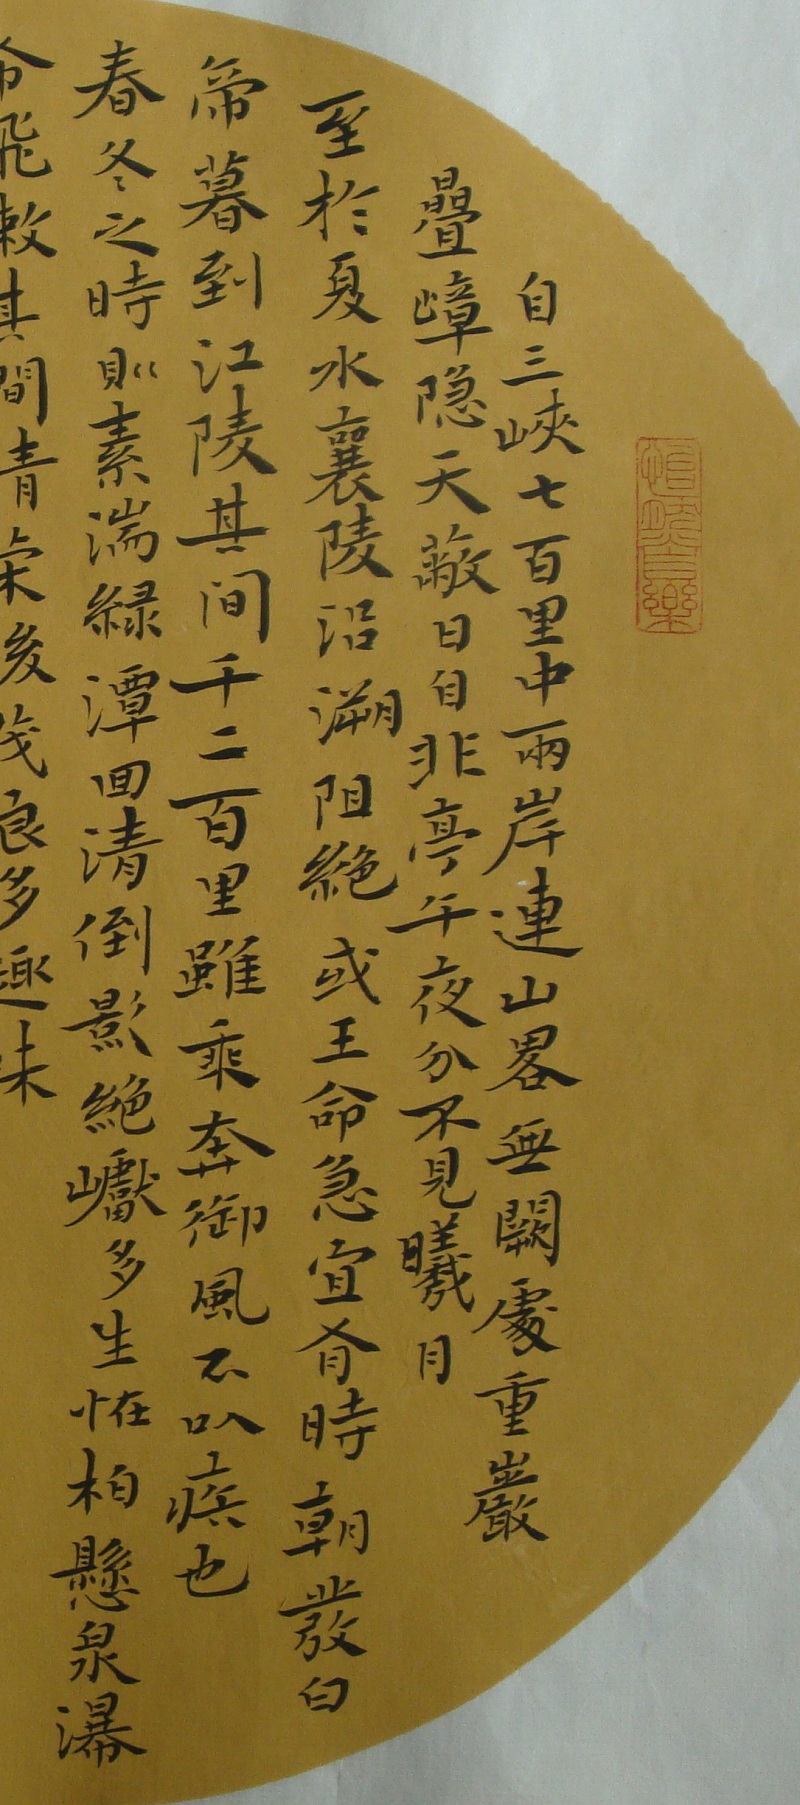 自三峽七百里中兩岸連山畧無闕處重巖
疊嶂隐天蔽日自非亭午夜分不見曦月
至於夏水襄陵沿溯阻絶或王命急宣有時朝發白
帝暮到江陵其间千二百里雖乘奔御風不以疾也
春冬之時則素湍緑潭回清倒影絶巘多生怪柏懸泉瀑
飛漱其間清榮峻茂良多趣味